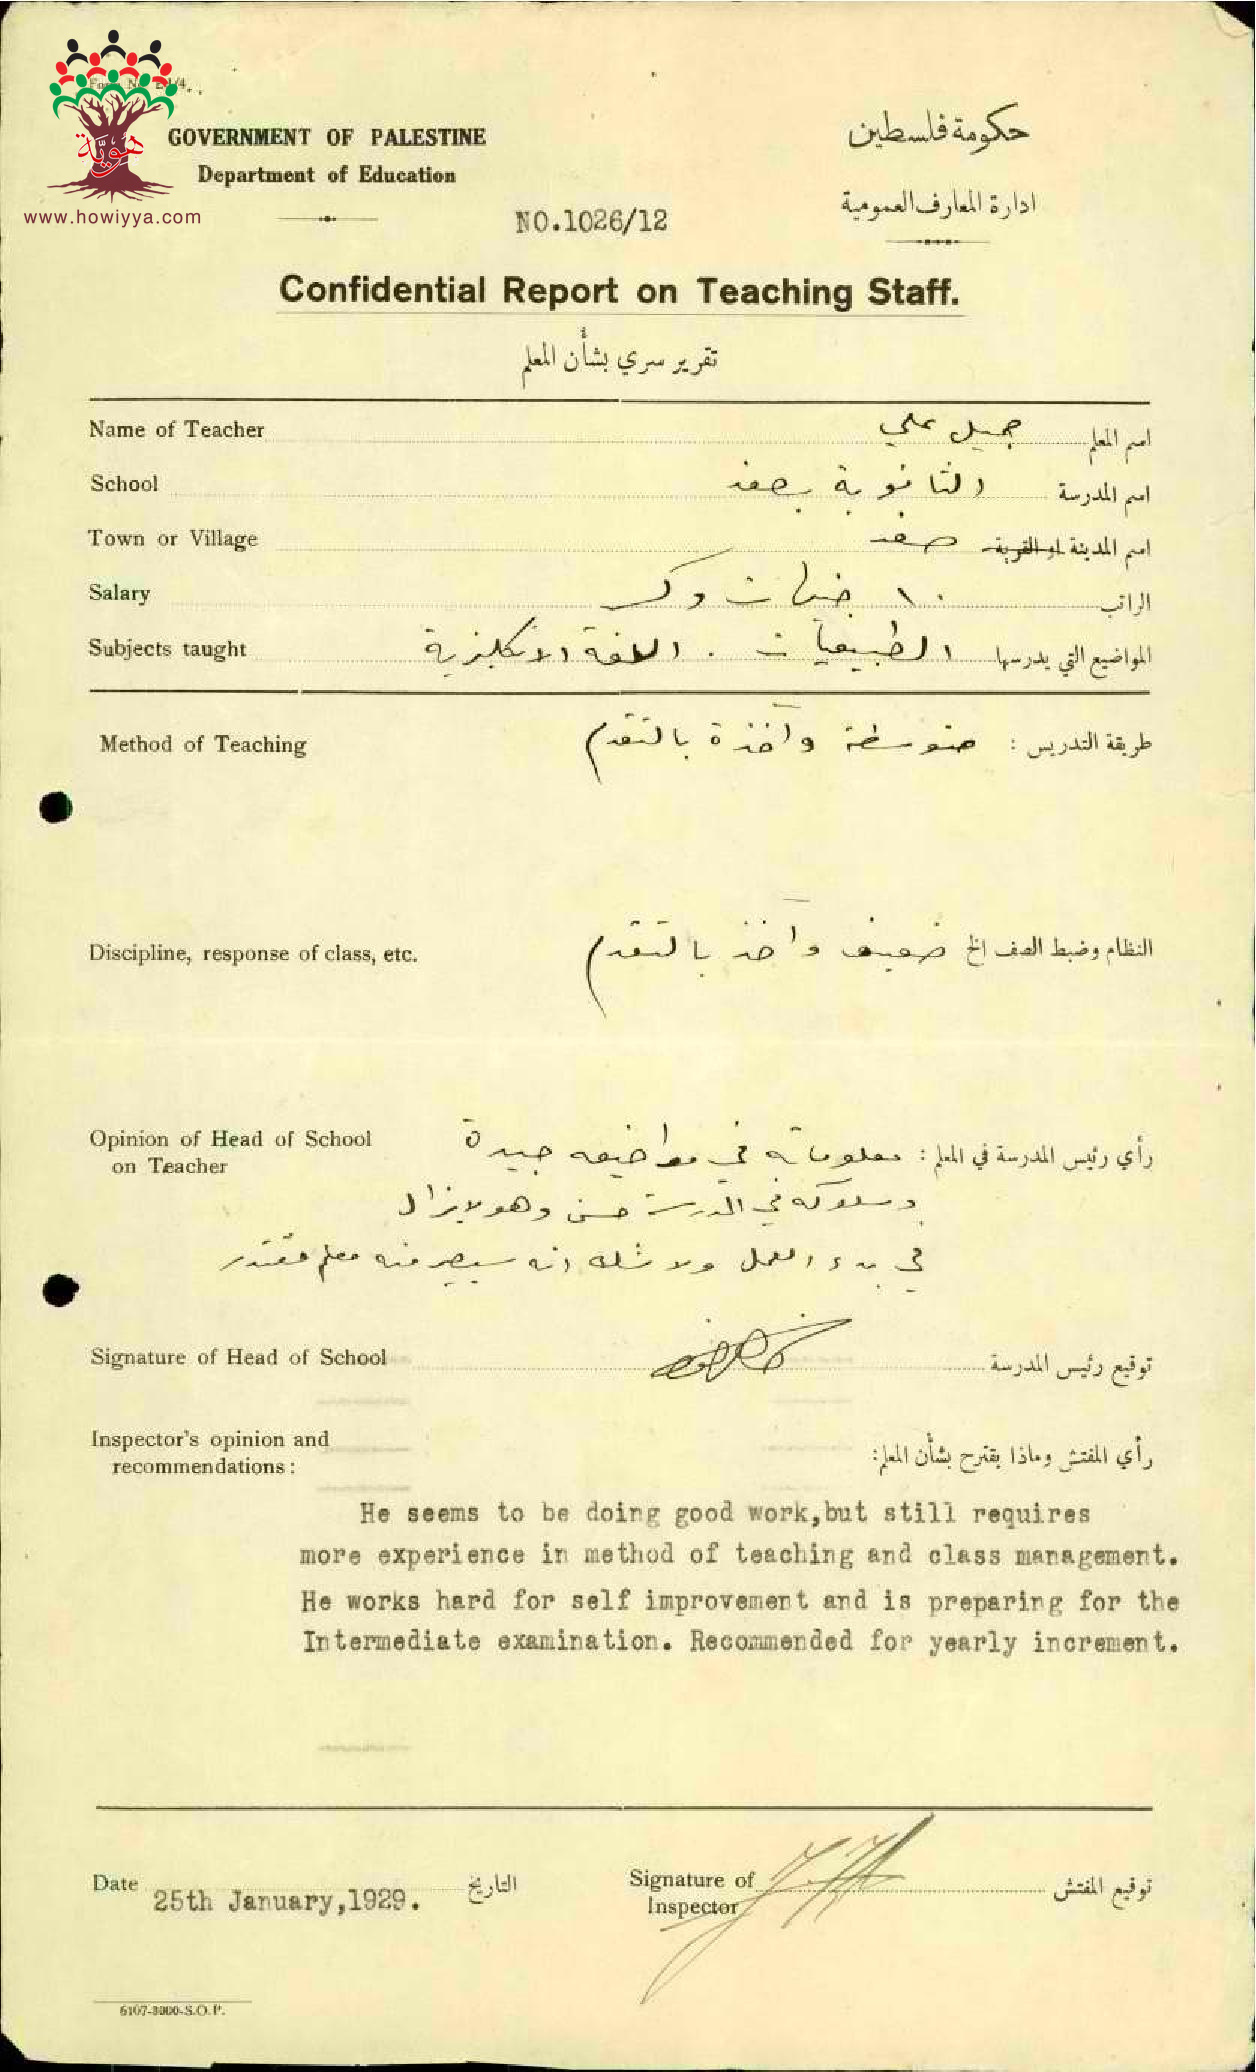 هوية
www.howiyya.com
GOVERNMENT OF PALESTINE
Department of Education
حكومة فلسطين
ادارة المعارف العمومية
NO.1026/12
Confidential Report on Teaching Staff.
تقرير سري بشأن المعلم
Name of Teacher جميل علي اسم المعلم
School الثانوية بصفد اسم المدرسة
Town or Village صفد اسم المدينة او القرية
Salary ١٠ جنيهات و الراتب
Subjects taught الطبيعيات . اللغة الانكليزية المواضيع التي يدرسها
Method of Teaching طريقة التدريس : متوسطة وآخذة بالتقدم
Discipline, response of class, etc. النظام وضبط الصف الخ ضعيف وآخذ بالتقدم
Opinion of Head of School
on Teacher
رأي رئيس المدرسة في المعلم : معلوماته في مواضيعه جيدة
وسلوكه في المدرسة حسن وهو لا يزال
في بدء العمل ولا شك انه سيصير منه معلم مقتدر
Signature of Head of School توقيع رئيس المدرسة
Inspector's opinion and
recommendations :
رأي المفتش وماذا يقترح بشأن المعلم:
He seems to be doing good work,but still requires
more experience in method of teaching and class management.
He works hard for self improvement and is preparing for the
Intermediate examination. Recommended for yearly increment.
Date 25th January,1929. التاريخ
Signature of
Inspector
توقيع المفتش
6107-3000-S.O.P.